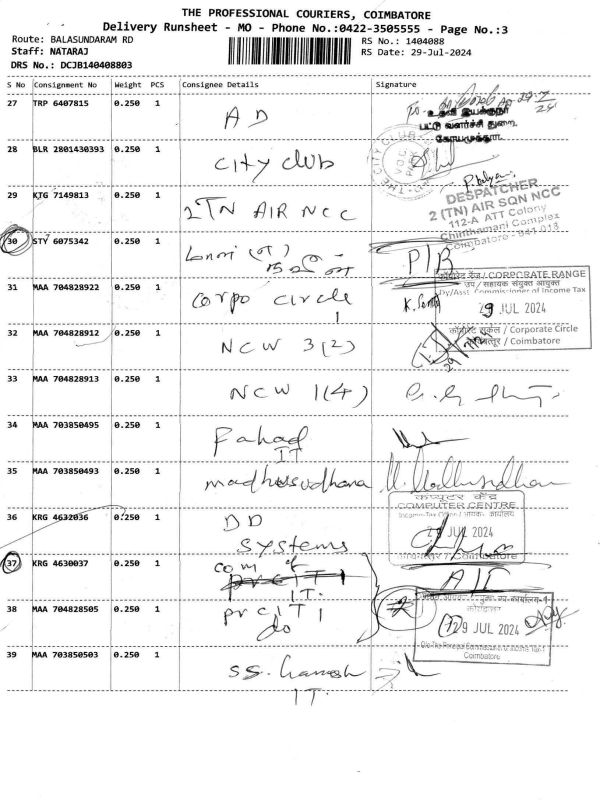 THE PROFESSIONAL COURIERS, COIMBATORE
Delivery Runsheet - MO - Phone No.:0422-3505555 - Page No.:3
Route: BALASUNDARAM RD
RS No.: 1404088
Staff: NATARAJ
RS Date: 29-Jul-2024
DRS No.: DCJB140408803
S No Consignment No Weight PCS Consignee Details Signature
27 TRP 6407815 0.250 1
AD
உதவி இயக்குநர்
பட்டு வளர்ச்சி துறை
கோயமுத்தூர்
28 BLR 2801430393 0.250 1
City club
THE CITY CLUB
29 KTG 7149813 0.250 1
2TN AIR NCC
DESPATCHER
2 (TN) AIR SQN NCC
112-A ATT Colony
Chinthamani Complex
Coimbatore - 641 018
30 STY 6075342 0.250 1
P/B
31 MAA 704828922 0.250 1
Corpo circle
1
कॉर्पोरेट रेंज / CORPORATE RANGE
उप / सहायक संयुक्त आयुक्त
Dy/Asst. Commissioner of Income Tax
29 JUL 2024
कॉर्पोरेट सर्कल / Corporate Circle
कोयंबत्तूर / Coimbatore
32 MAA 704828912 0.250 1
NCW 3(2)
29/7/24
33 MAA 704828913 0.250 1
NCW 1(4)
34 MAA 703850495 0.250 1
Fahad
IT
35 MAA 703850493 0.250 1
madhusudhana
36 KRG 4632036 0.250 1
DD
Systems
कंप्यूटर केंद्र
COMPUTER CENTRE
29 JUL 2024
Coimbatore
37 KRG 4630037 0.250 1
com of
IT.
A/T
38 MAA 704828505 0.250 1
pr CIT 1
do
29 JUL 2024
O/o The Principal Commissioner of Income Tax-1
Coimbatore
39 MAA 703850503 0.250 1
SS. Ganesh
IT.